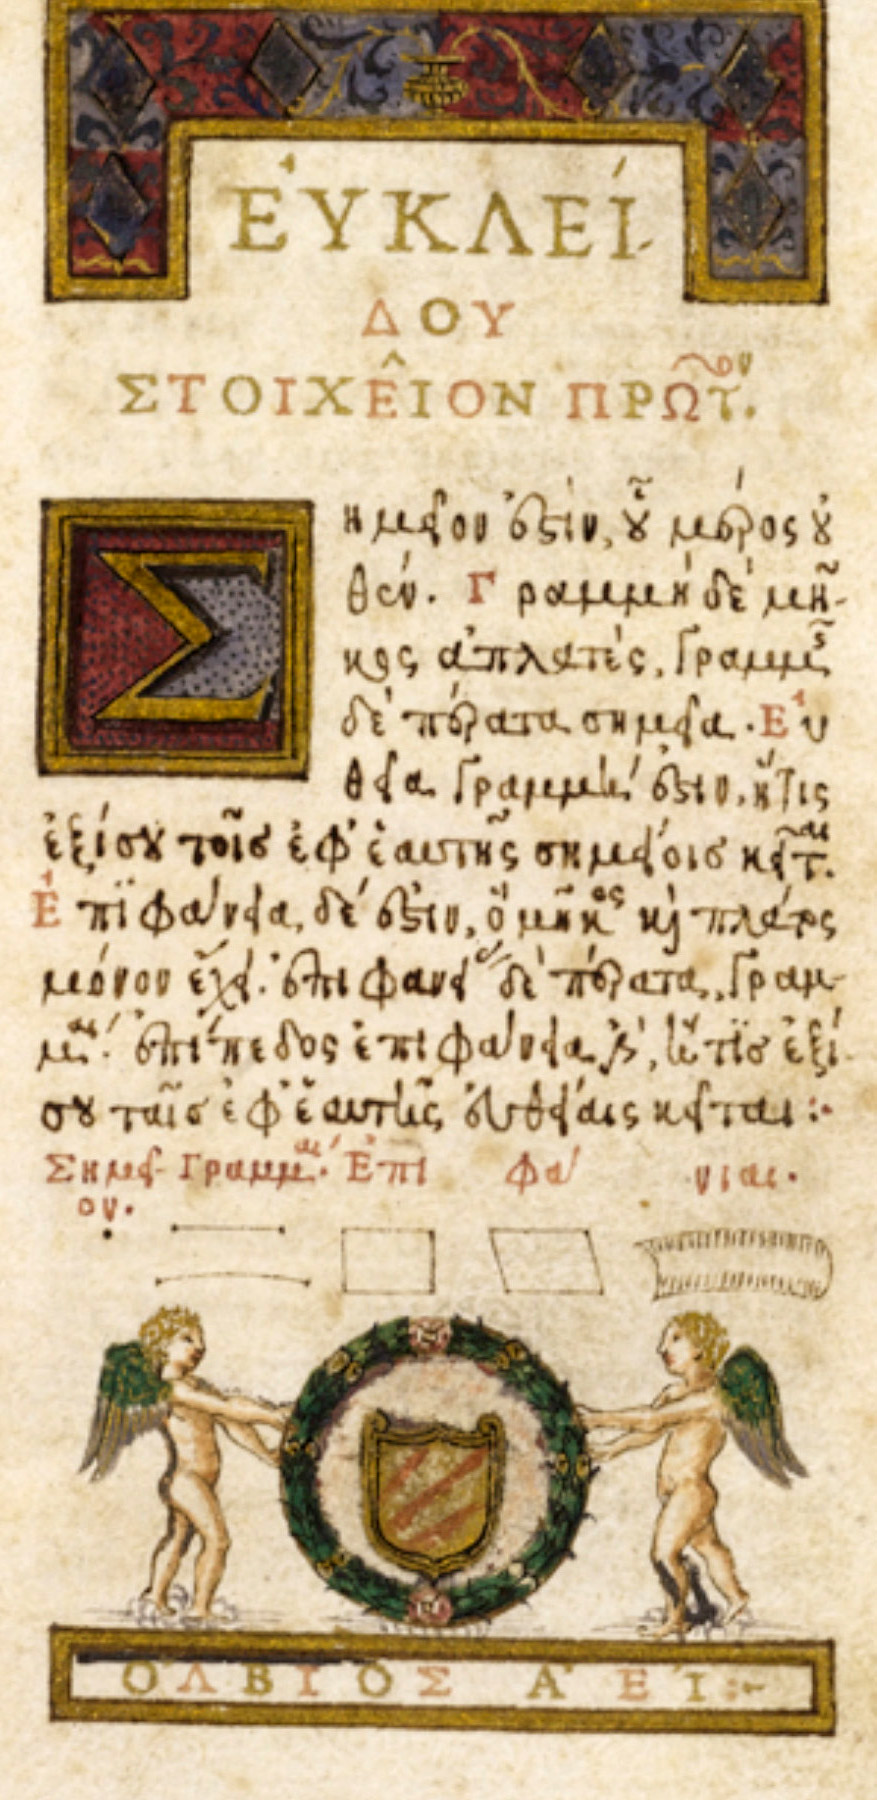 ΕὐΚΛΕΊ-
ΔΟΥ
ΣΤΟΙΧΕῖΟΝ ΠΡΩ͂Τ^ου.
Σημεῖον ἐστὶν, οὗ μέρος οὐ
θέν. Γραμμὴ δὲ μῆ-
κος ἀπλατές, γραμμῆς
δὲ πέρατα σημεῖα. Εὐ
θεῖα γραμμή ἐστιν, ἥτις
ἐξίσου τοῖσ ἐφ' ἑαυτῆς σημείοισ κεῖτ^αι.
Ἐπϊφάνεια, δέ ἐστιν, ὃ μῆκ^ος καὶ πλάτος
μόνον ἔχει. ἐπιφανεί^ας δὲ πέρατα, γραμ-
μ^αί. ἐπίπεδος ἐπιφάνεια β', ἥ τϊσ ἐξί
σου ταῖσ ἐφ' ἑαυτῆς εὐθείαις κεῖται :-
Σημεῖ- Γραμμ^αί. Ἐπι φά νιαι.
ον.
ὌΛΒΙΟΣ Ἀ ΕΊ :-